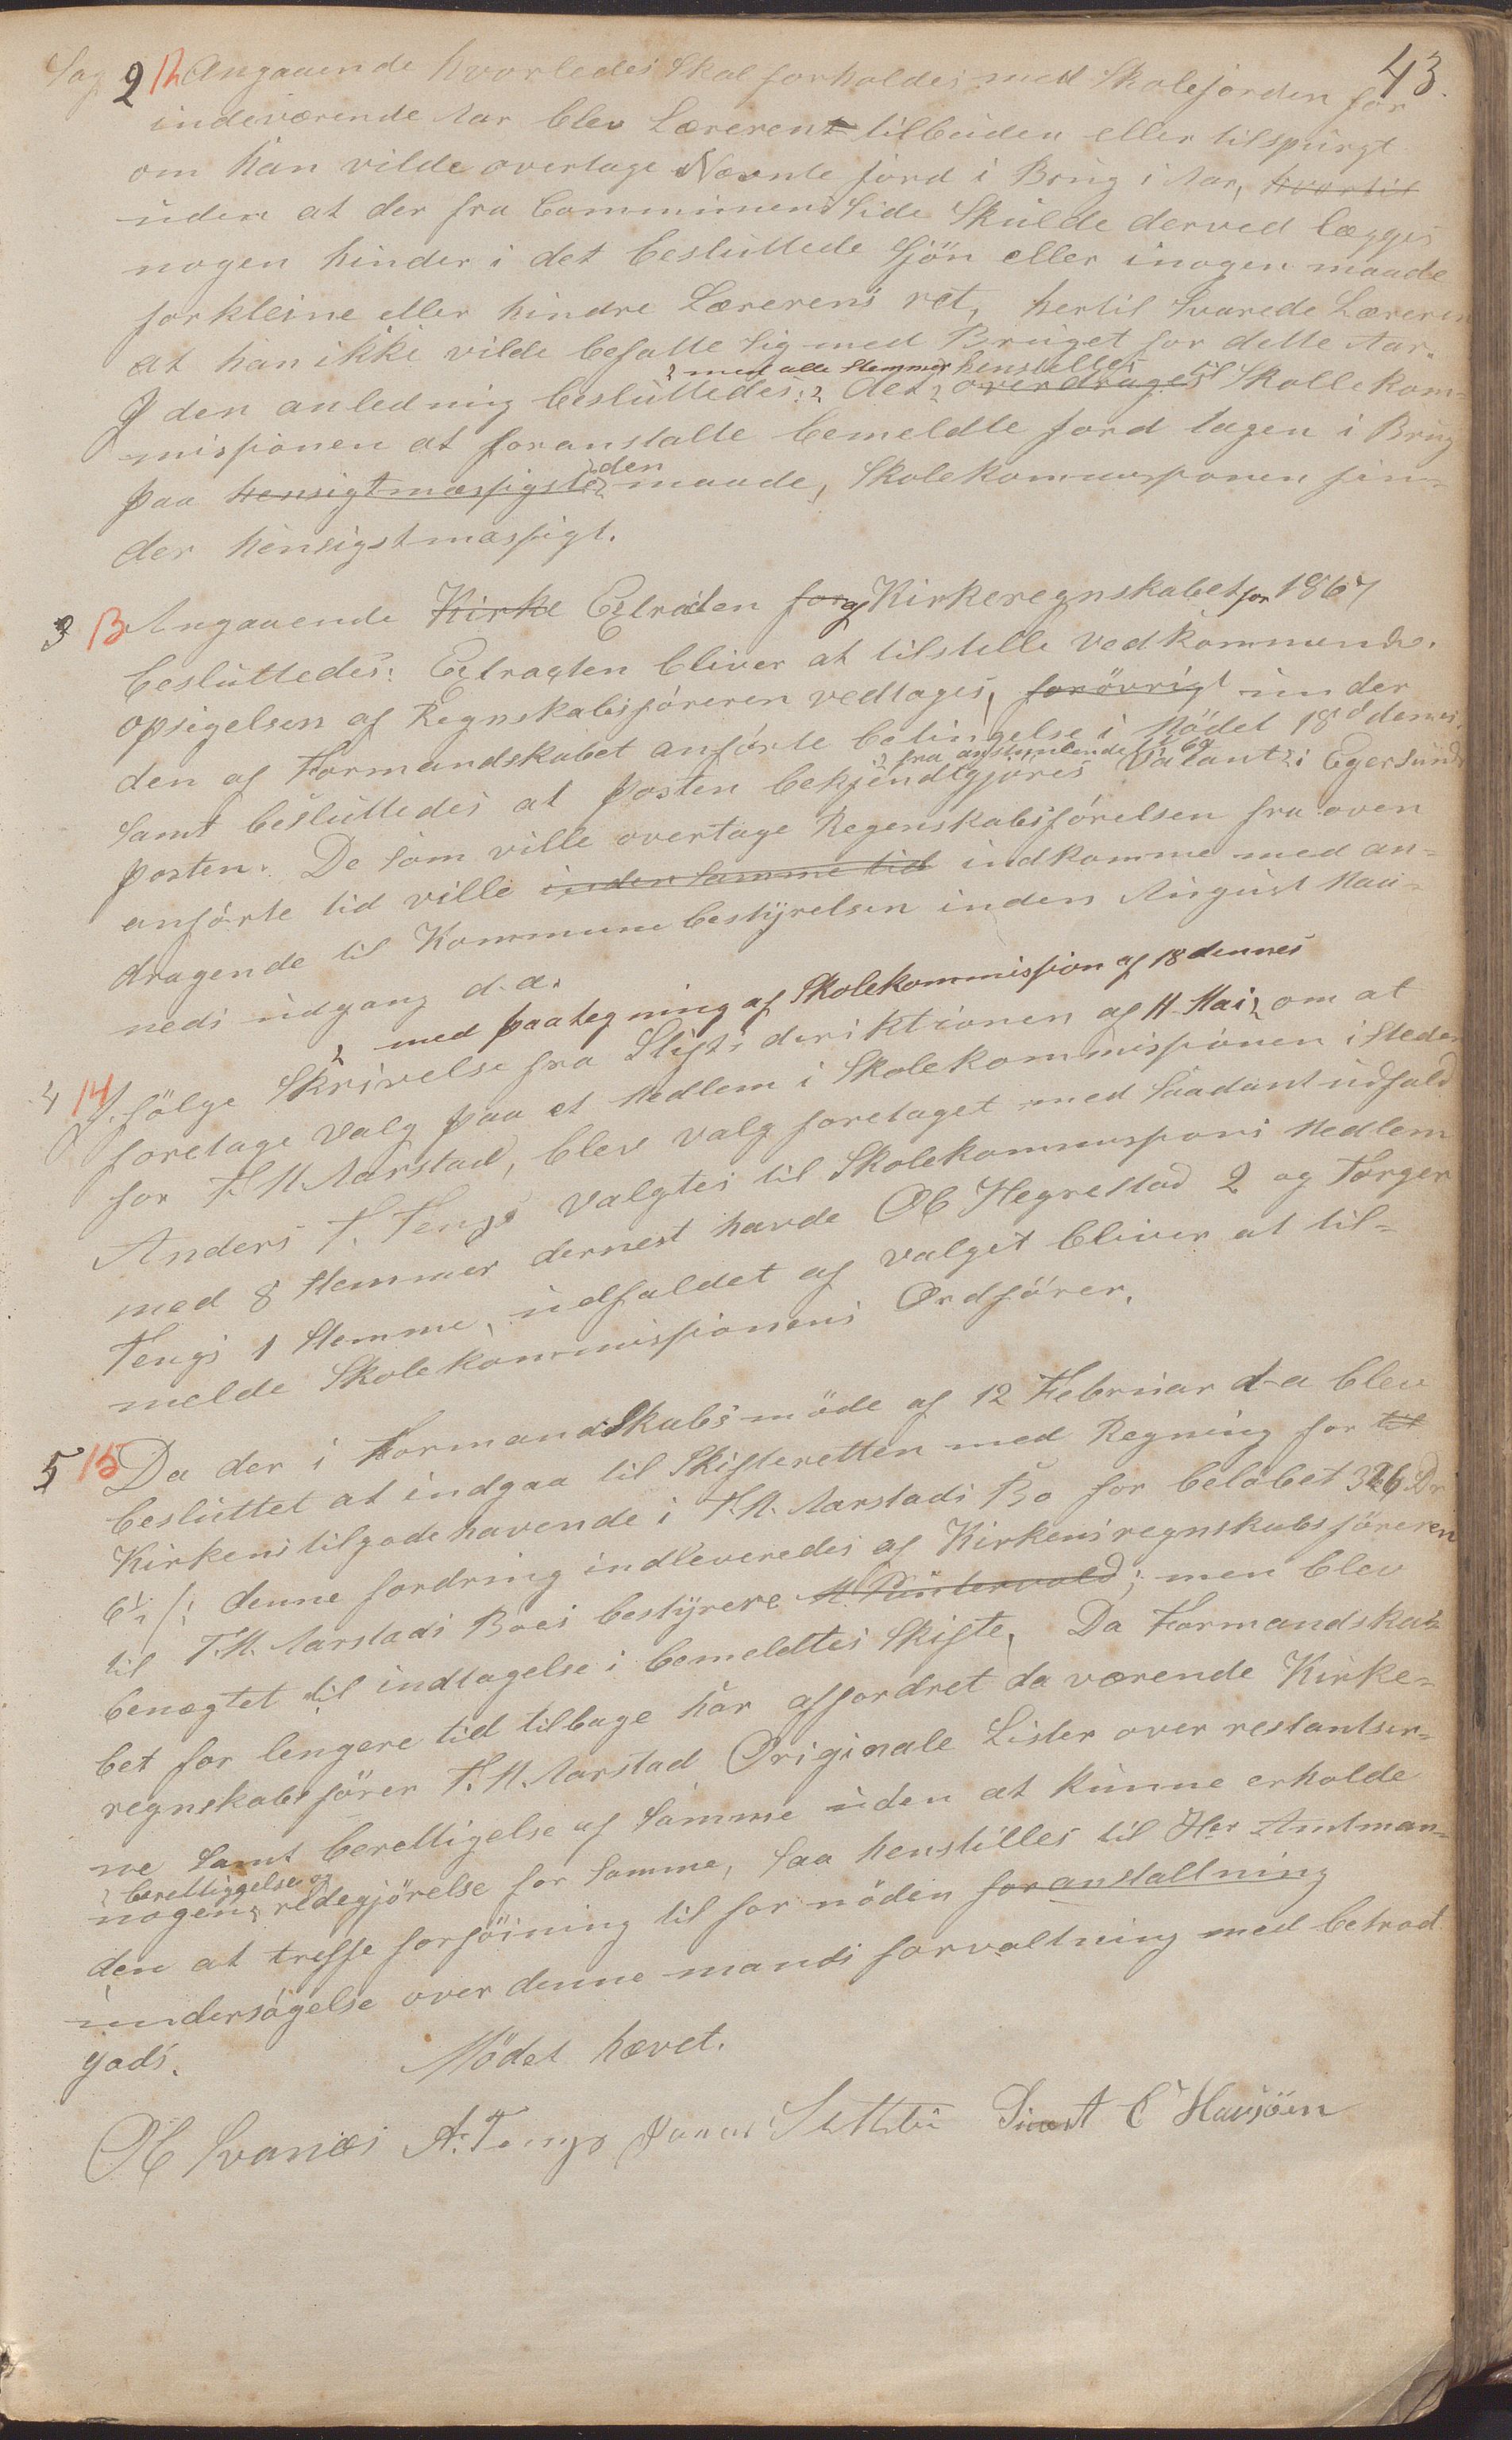 43.
Sag 2 12 Angaaende hvorledes Skal forholdes med Skolejorden for
indeværende Aar blev Læreren tilbuden eller tilspurgt
om han vilde overtage Nævnte jord i Brug i Aar, hvortil
uden at der fra Communens Side Skulde derved lægges
nogen hinder i det besluttede Sjön eller inogen maade
forkleine eller hindre Lærerens ret, hertil Svarede Læreren
at han ikke vilde befatte Sig med Bruget for dette Aar.
med alle Stemmer henstilles
I den anledning besluttedes: det overdrages til Skolekom-
missionen at foranstalte bemeldte jord tagen i Brug
den
paa hensigtmæssigste maade, Skolekommissionen fin-
der hensigstmæssigt.
3 13 Angaaende Kirke Extracten for af Kirkeregnskabet for 1867
besluttedes: Extragten bliver at tilstille vedkommende.
opsigelsen af Regnskabsföreren vedtages, forövrigt under
den af Formandskabet anförte betingelse i Mödet 18d dennes.
fra anstundende
Samt besluttedes at posten bekjendtgjöres Vakant i Egersunds
posten. De som ville overtage Regenskabsförelsen fra oven
anförte tid ville inden Samme tid indkomme med an-
dragende til Kommunebestyrelsen inden August Maa-
neds udgang d.a.
med paategning af Skolekommission af 18 dennes
4 14 I fölge Skrivelse fra Stifts diriktionen af 11 Mai, om at
foretage valg paa et Medlem i Skolekommissionen i Steden
for T. M. Aarstad, blev valg foretaget med Saadant udfald
Anders T. Tengs valgtes til Skolekommissons Medlem
med 8 Stemmer dernest havde Ob Hegrestad 2 og Torger
Tengs 1 Stemme, udfaldet af valget bliver at til-
melde Skolekommissionens Ordförer.
5 15 Da der i Formandskabs möde af 12 Februar d-a blev
besluttet at indgaa til Skifteretten med Regning for til
Kirkens tilgodehavende i T. M. Aarstads Bo for belöbet 326 Dr
6½ /: denne fordring indleveredes af Kirkens regnskabsföreren
til T. M. Aarstads Boes bestyrere M. Puntervold; men blev
benægtet til indtagelse i bemeldtes Skifte, Da Formandska-
bet for lengere tid tilbage har affordret da værende Kirke-
regnskabsförer T. M. Aarstad Originale Lister over restantser-
ne Samt berettigelse af Samme uden at kunne erholde
berettiggelse og
nogen redegjörelse for Samme, Saa henstilles til Her Amtman-
den at treffe forföining til for nöden foranstaltning
undersögelse over denne mands forvaltning med betrod
gods.
Mödet hævet.
Ob Svanæs A. Tengs Jonas Sletteb Sivert C Havsöen